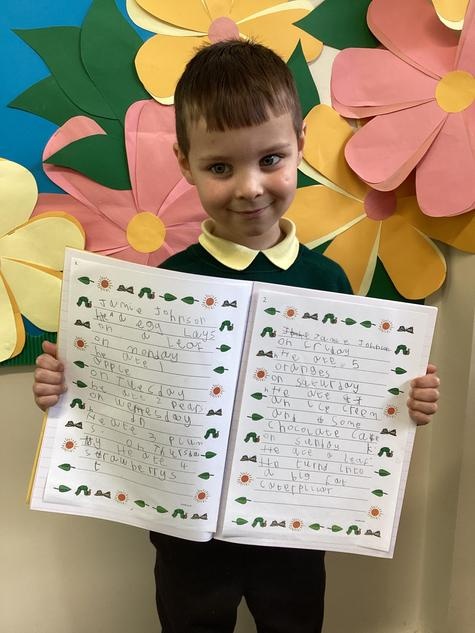 1.
Jamie Johnson
a egg lays
on a leaf
on monday
he ate 1
apple
on Tuesday
he ate 2 pear
on wemesday
he ate 3 plum
s on Thursday
he ate 4
strawberrys
2.
Jamie Johnson
on criyday
He ate 5
oranges
on saturday
He ate
an ice creem
and some
chocolate cake
on sunday
He ate a leaf
He turnd into
a big fat
caterpillar